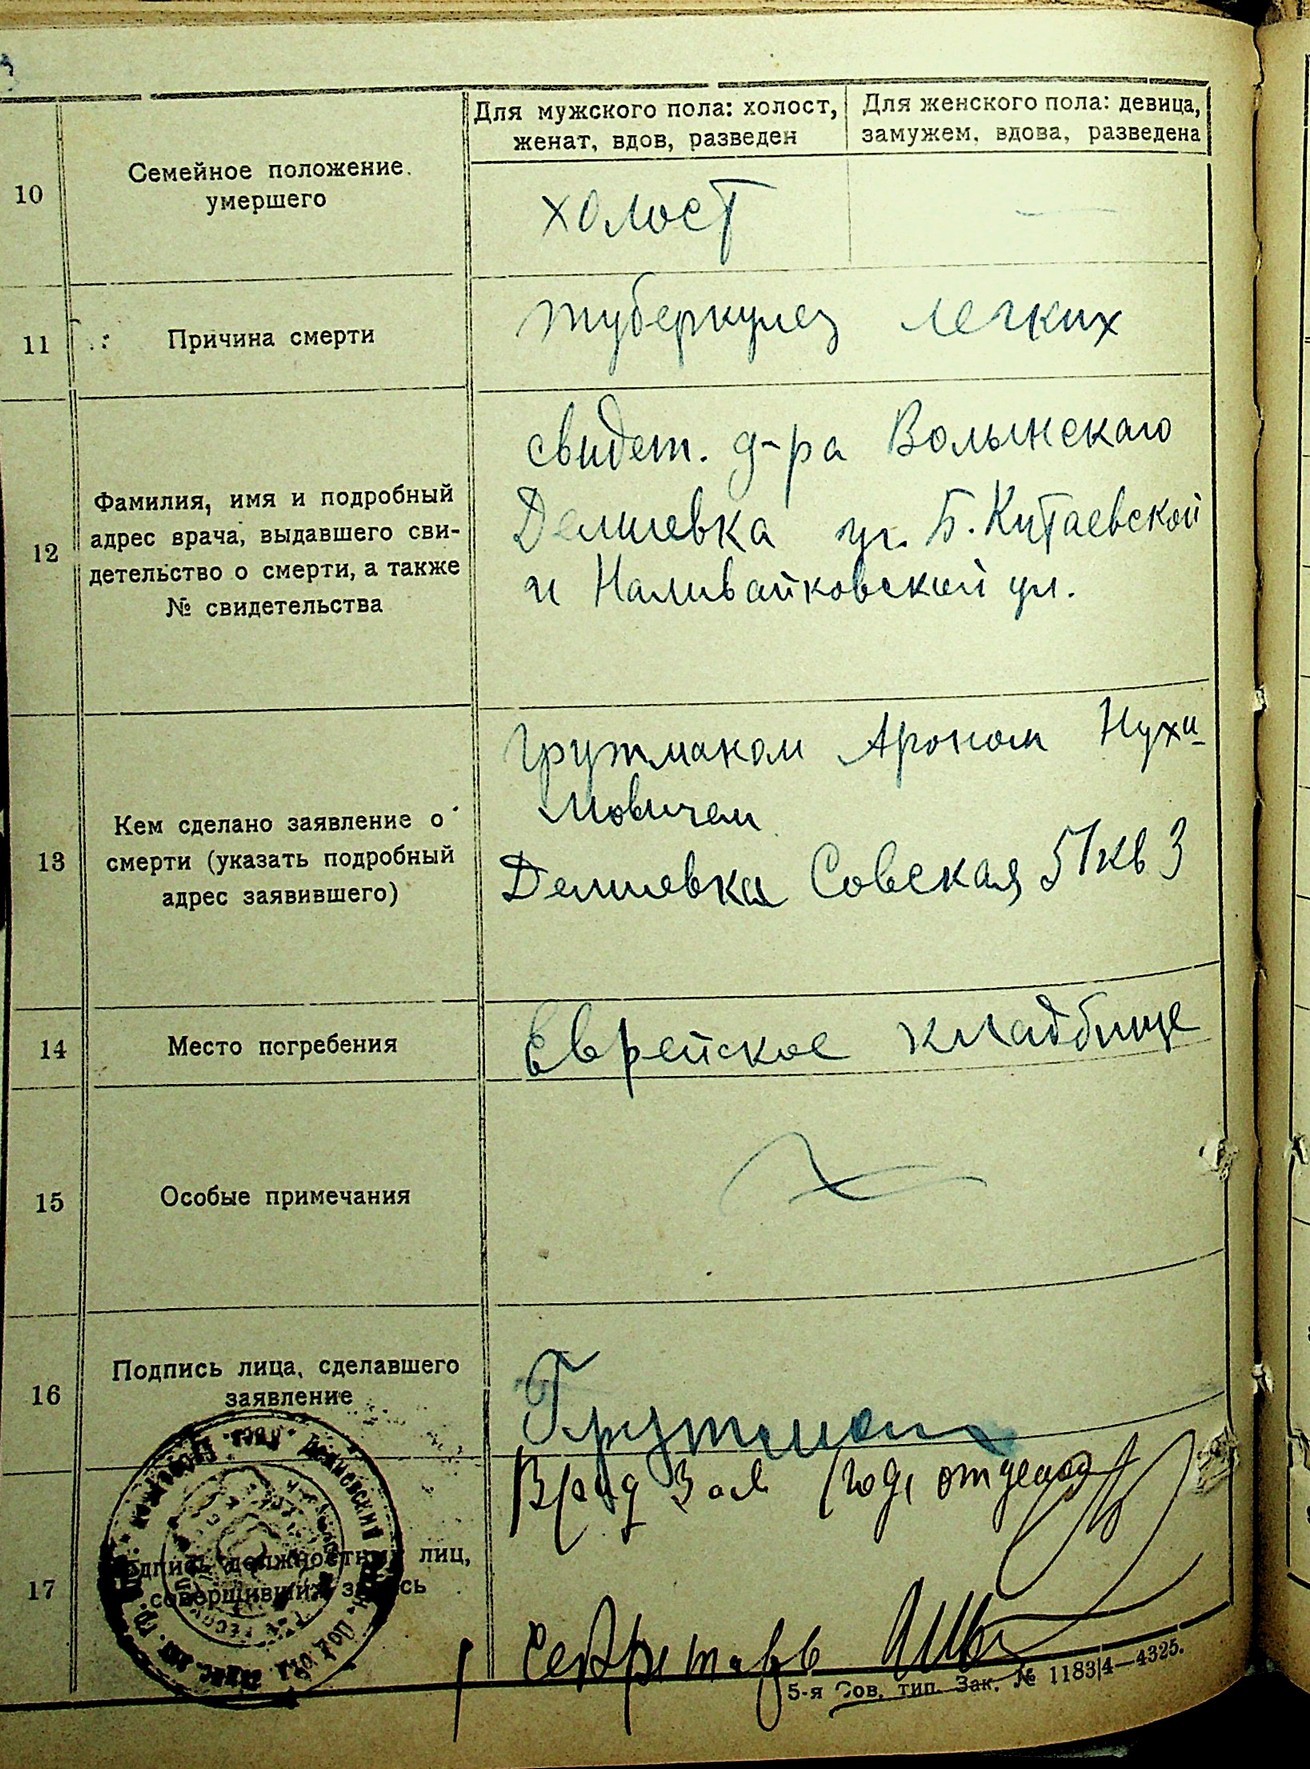 Для мужского пола: холост,
женат, вдов, разведен
Для женского пола: девица,
замужем, вдова, разведена
10
Семейное положение
умершего
холост
—
11
Причина смерти
туберкулез легких
12
Фамилия, имя и подробный
адрес врача, выдавшего сви-
детельство о смерти, а также
№ свидетельства
свидет. д-ра Волынскаго
Демиевка уг. Б. Китаевской
и Наливайковской ул.
13
Кем сделано заявление о
смерти (указать подробный
адрес заявившего)
Грутманом Ароном Нухи-
мовичем
Демиевка Совская 57 кв 3
14
Место погребения
Еврейское кладбище
15
Особые примечания
16
Подпись лица, сделавшего
заявление
Грутман
17
Подпись должностных лиц,
совершивших запись
Врид Зав
Секретарь
5-я Сов. тип. Зак. № 1183|4—4325.